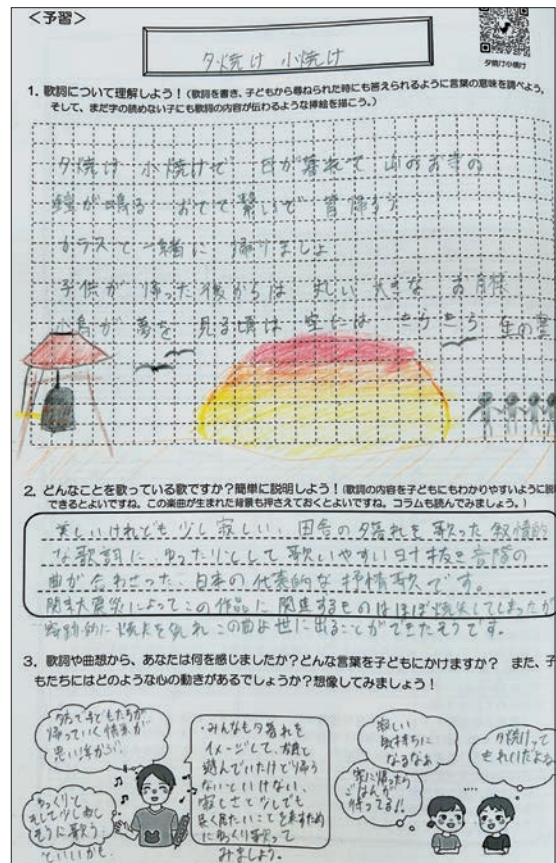 ＜予習＞
夕焼け 小焼け
夕焼け小焼け
1. 歌詞について理解しよう！（歌詞を書き、子どもから尋ねられた時にも答えられるように言葉の意味を調べよう。
そして、まだ字の読めない子にも歌詞の内容が伝わるような挿絵を描こう。）
夕焼け 小焼けで 日が暮れて 山のお寺の
鐘が鳴る おてて繋いで 皆帰ろう
カラスと一緒に 帰りましょ
子供が 帰った後からは 丸い大きな お月様
小鳥が 夢を 見る頃は 空には きらきら 金の
2. どんなことを歌っている歌ですか？簡単に説明しよう！（歌詞の内容を子どもにもわかりやすいように説
できるとよいですね。この楽曲が生まれた背景も押さえておくとよいですね。コラムも読んでみましょう。）
美しいけれども少し寂しい、田舎の夕暮れを歌った叙情的
な歌詞に、ゆったりとして歌いやすいヨナ抜き音階の
曲が合わさった、日本の代表的な抒情歌です。
関東大震災によってこの作品に関連するものはほぼ焼失してしまったが
焼失を免れ この曲は世に出ることができたそうです。
3. 歌詞や曲想から、あなたは何を感じましたか？どんな言葉を子どもにかけますか？ また、子
もたちにはどのような心の動きがあるでしょうか？想像してみましょう！
子どもたちが
帰っていく情景が
思い浮かぶ。
ゆっくりと
そして少し
そうに歌う
といいかも。
・みんなも夕暮れを
イメージして、
遊んでいたけど帰ら
ないといけない、
寂しさと少しでも
長く居たいことを表すため
にゆっくり歌って
みましょう。
寂しい
気持ちに
なるなあ。
家に帰ったら
ごはんが
待ってる！
夕焼けって
きれいだよね